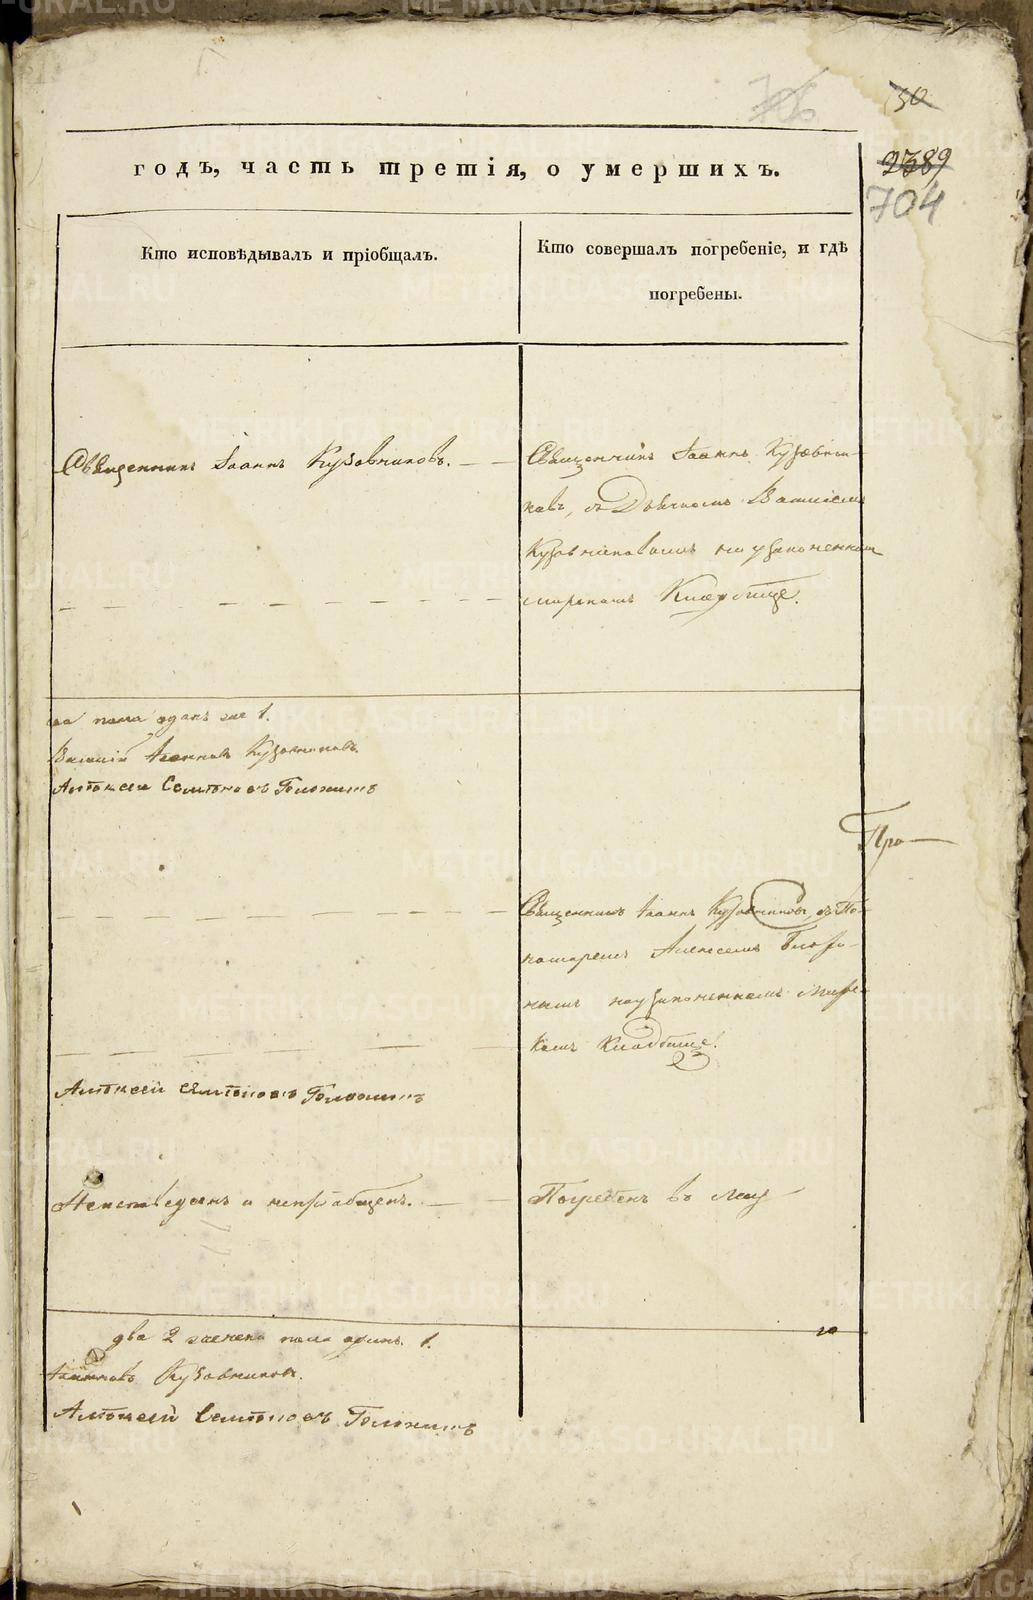 50
2389
704
годъ, часть третія, о умершихъ.
Кто исповѣдывалъ и пріобщалъ.
Кто совершалъ погребеніе, и гдѣ
погребены.
Священникъ Іоаннъ Кузовниковъ.
Священникъ Іоаннъ Кузовни-
ковъ, съ Дьячкомъ Василіемъ
Кузовниковымъ на узаконенномъ
мирскомъ Кладбище.
пола одинъ 1.
Василій Іоанновъ Кузовниковъ
Алѣксей Семѣновъ
Про
Священникъ Іоаннъ Кузовниковъ, съ По-
намаремъ Алексеемъ
на узаконенномъ мирс-
комъ Кладбище.
Алѣксей Семѣновъ
Неисповедованъ и неприобщенъ.
Погребенъ въ
два 2 женска пола одинъ. 1.
Іоанновъ Кузовниковъ.
Алѣксей Семѣновъ
METRIKI.GASO-URAL.RU